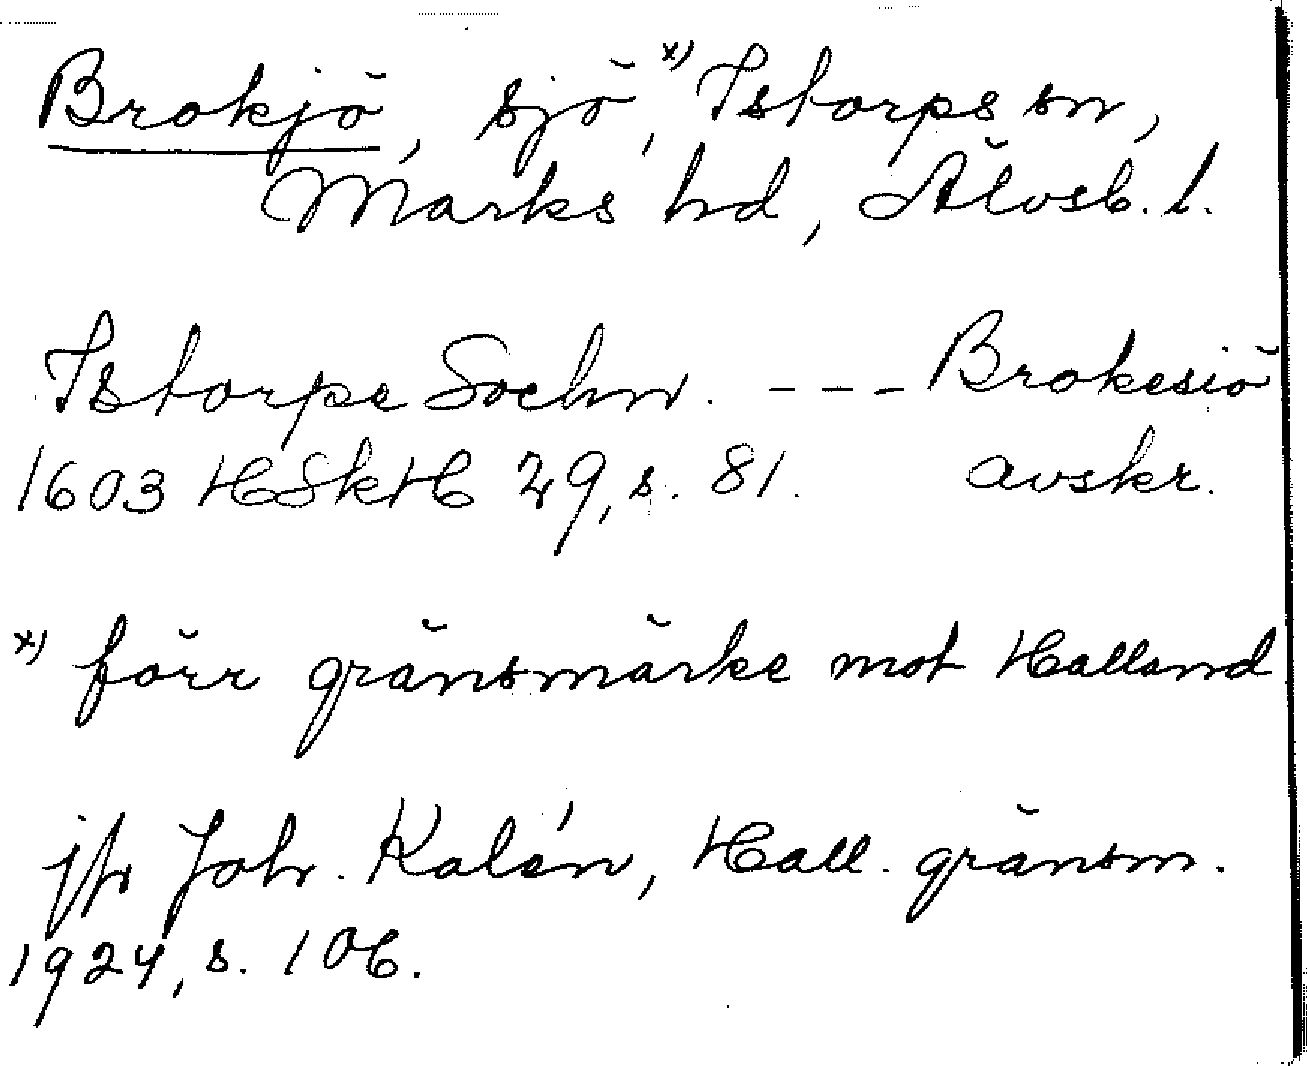 Brokjö, sjö,ˣ⁾ Istorps sn,
Marks hd, Älvsb. l.
Istorps Sochn. - - - Brokesiö
1603 HSkH 29, s. 81. avskr.
x) förr gränsmärke mot Halland
jfr Joh. Kalén, Hall. gränsm.
1924, s. 106.